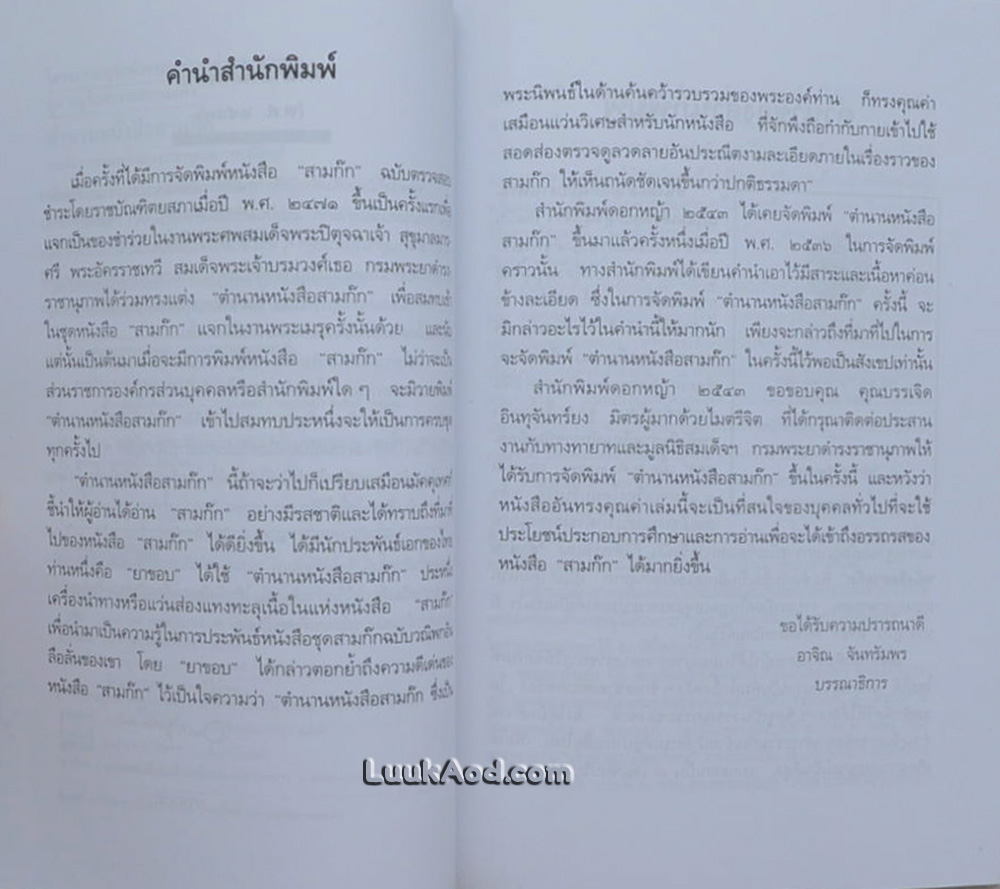 คำนำสำนักพิมพ์
เมื่อครั้งที่ได้มีการจัดพิมพ์หนังสือ "สามก๊ก" ฉบับตรวจสอบ
ชำระโดยราชบัณฑิตยสภาเมื่อปี พ.ศ. ๒๔๗๑ ขึ้นเป็นครั้งแรกเพื่อ
แจกเป็นของชำร่วยในงานพระศพสมเด็จพระปิตุจฉาเจ้า สุขุมาลมาร
ศรี พระอัครราชเทวี สมเด็จพระเจ้าบรมวงศ์เธอ กรมพระยาดำรง
ราชานุภาพได้ร่วมทรงแต่ง "ตำนานหนังสือสามก๊ก" เพื่อสมทบเข้า
ในชุดหนังสือ "สามก๊ก" แจกในงานพระเมรุครั้งนั้นด้วย และนับ
แต่นั้นเป็นต้นมาเมื่อจะมีการพิมพ์หนังสือ "สามก๊ก" ไม่ว่าจะเป็น
ส่วนราชการองค์กรส่วนบุคคลหรือสำนักพิมพ์ใด ๆ จะมิวายพิมพ์
"ตำนานหนังสือสามก๊ก" เข้าไปสมทบประหนึ่งจะให้เป็นการครบชุด
ทุกครั้งไป
"ตำนานหนังสือสามก๊ก" นี้ถ้าจะว่าไปก็เปรียบเสมือนมัคคุเทศก์
ชี้นำให้ผู้อ่านได้อ่าน "สามก๊ก" อย่างมีรสชาติและได้ทราบถึงที่มาที่
ไปของหนังสือ "สามก๊ก" ได้ดียิ่งขึ้น ได้มีนักประพันธ์เอกของไทย
ท่านหนึ่งคือ "ยาขอบ" ได้ใช้ "ตำนานหนังสือสามก๊ก" ประหนึ่ง
เครื่องนำทางหรือแว่นส่องแทงทะลุเนื้อในแห่งหนังสือ "สามก๊ก"
เพื่อนำมาเป็นความรู้ในการประพันธ์หนังสือชุดสามก๊กฉบับวณิพกอัน
ลือลั่นของเขา โดย "ยาขอบ" ได้กล่าวตอกย้ำถึงความดีเด่นของ
หนังสือ "สามก๊ก" ไว้เป็นใจความว่า "ตำนานหนังสือสามก๊ก ซึ่งเป็น
พระนิพนธ์ในด้านค้นคว้ารวบรวมของพระองค์ท่าน ก็ทรงคุณค่า
เสมือนแว่นวิเศษสำหรับนักหนังสือ ที่จักพึงถือกำกับกายเข้าไปใช้
สอดส่องตรวจดูลวดลายอันประณีตงามละเอียดภายในเรื่องราวของ
สามก๊ก ให้เห็นถนัดชัดเจนขึ้นกว่าปกติธรรมดา"
สำนักพิมพ์ดอกหญ้า ๒๕๔๓ ได้เคยจัดพิมพ์ "ตำนานหนังสือ
สามก๊ก" ขึ้นมาแล้วครั้งหนึ่งเมื่อปี พ.ศ. ๒๕๓๖ ในการจัดพิมพ์
คราวนั้น ทางสำนักพิมพ์ได้เขียนคำนำเอาไว้มีสาระและเนื้อหาค่อน
ข้างละเอียด ซึ่งในการจัดพิมพ์ "ตำนานหนังสือสามก๊ก" ครั้งนี้ จะ
มิกล่าวอะไรไว้ในคำนำนี้ให้มากนัก เพียงจะกล่าวถึงที่มาที่ไปในการ
จะจัดพิมพ์ "ตำนานหนังสือสามก๊ก" ในครั้งนี้ไว้พอเป็นสังเขปเท่านั้น
สำนักพิมพ์ดอกหญ้า ๒๕๔๓ ขอขอบคุณ คุณบรรเจิด
อินทุจันทร์ยง มิตรผู้มากด้วยไมตรีจิต ที่ได้กรุณาติดต่อประสาน
งานกับทางทายาทและมูลนิธิสมเด็จฯ กรมพระยาดำรงราชานุภาพให้
ได้รับการจัดพิมพ์ "ตำนานหนังสือสามก๊ก" ขึ้นในครั้งนี้ และหวังว่า
หนังสืออันทรงคุณค่าเล่มนี้จะเป็นที่สนใจของบุคคลทั่วไปที่จะใช้
ประโยชน์ประกอบการศึกษาและการอ่านเพื่อจะได้เข้าถึงอรรถรสของ
หนังสือ "สามก๊ก" ได้มากยิ่งขึ้น
ขอได้รับความปรารถนาดี
อาจิณ จันทรัมพร
บรรณาธิการ
LuukAod.com